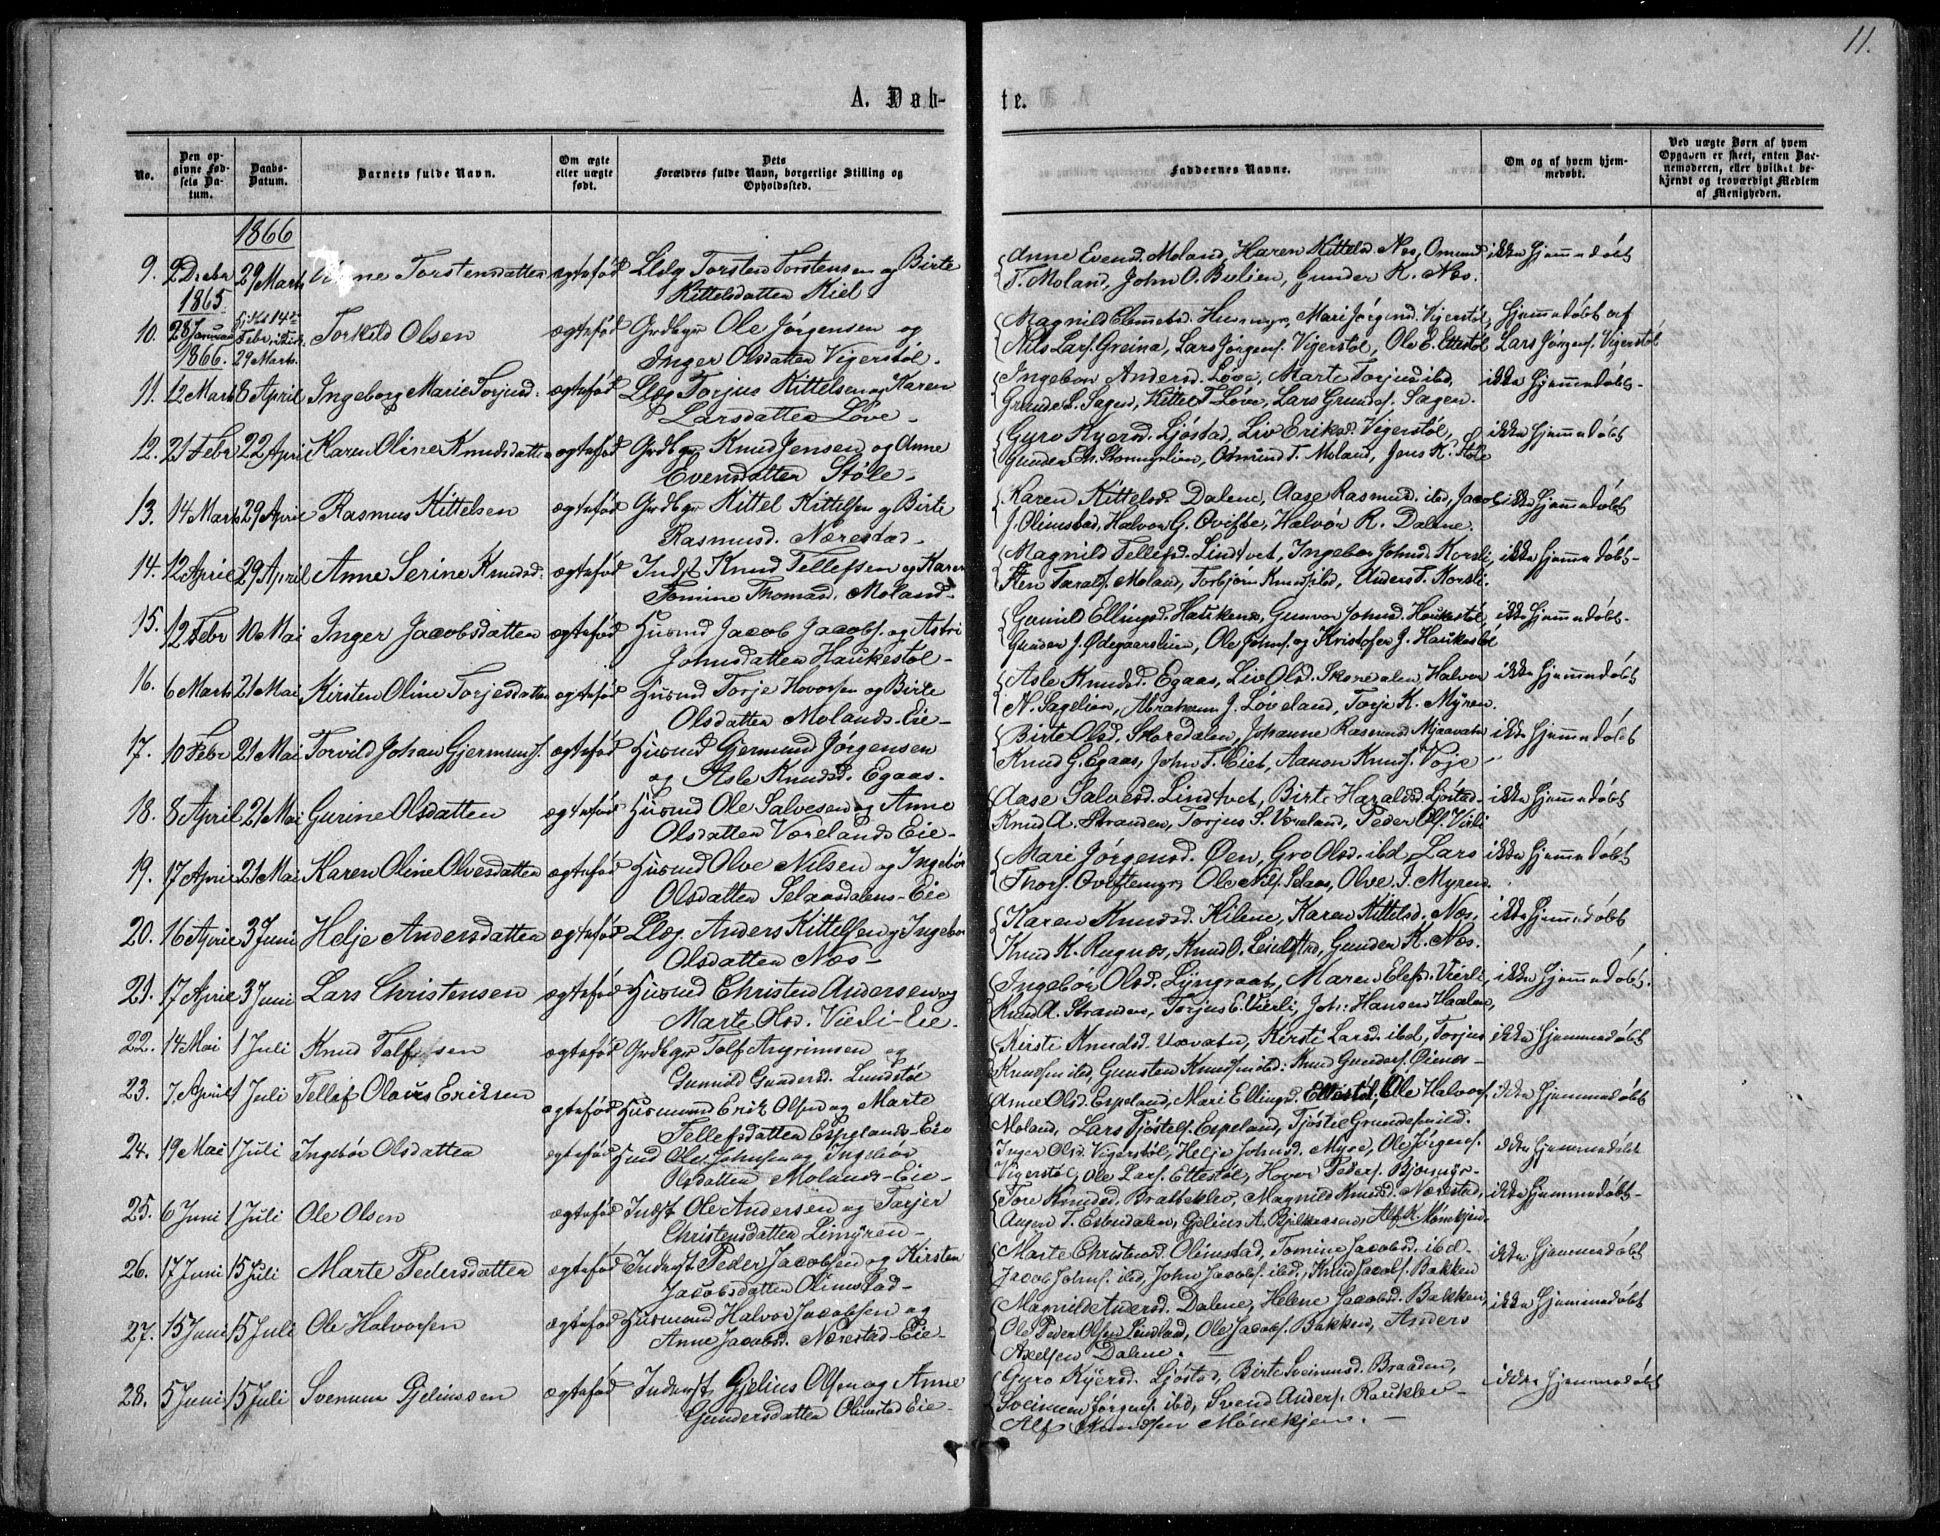 11.
A. Døb-
te.
No.
Den opgivne Fødsels Datum.
Daabs-Datum.
Barnets fulde Navn.
Om ægte eller uægte født.
Dets Forældres fulde Navn, borgerlige Stilling og Opholdsted.
Faddernes Navne.
Om og af hvem hjemmedøbt.
Ved uægte Børn af hvem Opgaven er skeet, enten Barnemoderen, eller hvilket bekjendt og troværdigt Medlem af Menigheden.
1866
9. 2 Decbr 1865 29 Marts Torstensdatter ægtefød Torsten Torstensen og Birte
Kittelsdatter Kiel
Anne Evensd. Moland, Karen Kittelsd. Næs, Omund ikke hjemmedøbt
T. Moland, John O. Gunder K. Næs.
10. 28 Januar 1866. 14de Febr. 29 Marts. Torkild Olsen ægtefød Grdbgr Ole Jørgensen og
Inger Olsdatter Vigerstøl.
Magnild Mari Jørgensd. Vigerstøl, Hjemmedøbt af
Nils Lars. Greina, Lars Jørgens. Vigerstøl, Ole E. Ettestøl Lars Jørgens. Vigerstøl
11. 12 Marts 8 April Ingeborg Marie Torjusd. ægtefød Torjus Kittelsen og Karen
Larsdatter Løve -
Ingebor Andersd. Løve, Marte Torjusd. ibd, ikke hjemmedøbt -
L. Sagen, Kittel T. Løve, Lars Sagen.
12. 21 Febr 22 April Karen Oline Knudsdatter ægtefød Grdbgr Knud Jensen og Anne
Evensdatter Støle -
Gyro Kyersd. Ljøstad, Liv Eriksd. Vigerstøl, ikke hjemmedøbt
Gunder Omund T. Moland, Jens K. Støle
13. 14 Marts 29 April Rasmus Kittelsen ægtefød Grdbgr Kittel Kittelsen og Birte
Rasmusd. Nærestad -
Karen Kittelsd. Dalene, Aase Rasmusd. ibd, Jacob ikke hjemmedøbt
J. Olimstad, Halvor G. Halvor R. Dalene.
14. 12 April 29 April Anne Serine Knudsd. ægtefød Indst Knud Tellefsen og Karen
Tomine Thomasd. Moland -
Magnild Tellefsd. Lindtvet, Ingebor Johnsd. Korsli, ikke hjemmedøbt -
Moland, Torbjørn Knuds. ibd, Anders T. Korsli.
15. 12 Febr 10 Mai Inger Jacobsdatter ægtefød Husmd Jacob Jacobs. og Astri
Johnsdatter Haukestøl -
Gunild Ellingsd. Gunvor Johnsd. Haukestøl, ikke hjemmedøbt -
Gunder J. Ødegaarslien, Ole Johns. og Kristofer J. Haukestøl
16. 6 Marts 21 Mai Kirsten Oline Torjesdatter ægtefød Husmd Torje og Birte
Olsdatter Molands-Eie -
Asle Knudsd. Egaas, Liv Olsd. Skoredalen, Halvor ikke hjemmedøbt
N. Sagelien, Abraham J. Løveland, Torje K. Myren.
17. 10 Febr 21 Mai Torvild Johan Gjermunds. ægtefød Husmd Gjermund Jørgensen
og Asle Knudsd. Egaas.
Birte Olsd. Skoredalen, Johanne Rasmusd. Mjaavatn ikke hjemmedøbt
Knud G. Egaas, John T. Eiet, Aanon Knuds. Voje
18. 8 April 21 Mai Gurine Olsdatter ægtefød Husmd Ole Salvesen og Anne
Olsdatter Værelands Eie -
Aase Salvesd. Lindtvet, Birte Haraldsd. Ljøstad - ikke hjemmedøbt
Knud A. Stranden, Torjus S. Væreland, Peder Ols. Vierli
19. 17 April 21 Mai Karen Oline Olvesdatter ægtefød Husmd Olve Nilsen og Ingebør
Olsdatter Selaasdalens-Eie
Mari Jørgensd. Øen, Gro Olsd. ibd, Lars ikke hjemmedøbt
Thors. Ole Nils. Selaas, Olve T. Myren.
20. 16 April 3 Juni Helje Andersdatter ægtefød Anders Kittelsen og Ingebor
Olsdatter Næs -
Karen Knudsd. Kilene, Karen Kittelsd. Næs, ikke hjemmedøbt
Knud K. Rugnæs, Knud O. Gunder K. Næs.
21. 17 April 3 Juni Lars Christensen ægtefød Husmd Christen Andersen og
Marte Olsd. Vierli-Eie.
Ingebør Olsd. Lyngraat, Maren Elefsd. Vierli, ikke hjemmedøbt.
Knud A. Stranden, Torjus E. Vierli, Joh. Hansen Haalen,
22. 14 Mai 1 Juli Knud Talfsen ægtefød Grdbgr Talf Angrimsen og
Gunild Gundersd. Lundstøl
Kirsti Knudsd. Uvatn, Kirsti Larsd. ibd, Torjus ikke hjemmedøbt
Knudsen ibd, Gunsten Knudsen ibd, Knud Gunders. Øienæs -
23. 7 April 1 Juli Tellef Olaus Eriksen ægtefød Husmand Erik Olsen og Marte
Tellefsdatter Espelands-Eie
Anne Olsd. Espeland, Mari Ellingsd. Ettestøl, Ole Halvors. ikke hjemmedøbt
Moland, Lars Tjøstels. Espeland, Tjøstel ibd.
24. 19 Mai 1 Juli Ingebør Olsdatter ægtefød Husmd Ole Johnsen og Ingebør
Olsdatter Molands-Eie -
Inger Olsd. Vigerstøl, Helje Johnsd. Myre, Ole Jørgens. ikke hjemmedøbt
Vigerstøl, Ole Lars. Ettestøl, Hover Peders.
25. 6 Juni 1 Juli Ole Olsen ægtefød Indst Ole Andersen og Torjer
Christensdatter Limyren -
Tore Knudsd. Bratteklev, Magnild Knudsd. Nærestad, ikke hjemmedøbt -
Augen T. Esbudalen, Gjelius A. Alf K. Mønekjen
26. 17 Juni 15 Juli Marte Pedersdatter ægtefød Inderst Peder Jacobsen og Kirsten
Jacobsdatter Olimstad -
Marte Christensd. Olimstad, Tomine Jacobsd. ibd - ikke hjemmedøbt
Jacob Johns. ibd, John Jacobs. ibd., Knud Jacobs. Bakken
27. 15 Juni 15 Juli Ole Halvorsen ægtefød Husmand Halvor Jacobsen og
Anne Jacobsd. Nærestad-Eie -
Magnild Andersd. Dalene, Helene Jacobsd. Bakken, ikke hjemmedøbt
Ole Peder Olsen Lindland, Ole Jacobs. Bakken, Anders
Axelsen Dalene. -
28. 5 Juni 15 Juli Svenum Gjeliussen ægtefød Inderst Gjelius Olsen og Anne
Gundersdatter Olimstad Eie -
Gyro Kyersd. Ljøstad, Birte Sveinusd. Braaden, ikke hjemmedøbt
Jørgens. ibd, Svend Anders. Raukleiv -
Alf Knudsen Mønekjen. -